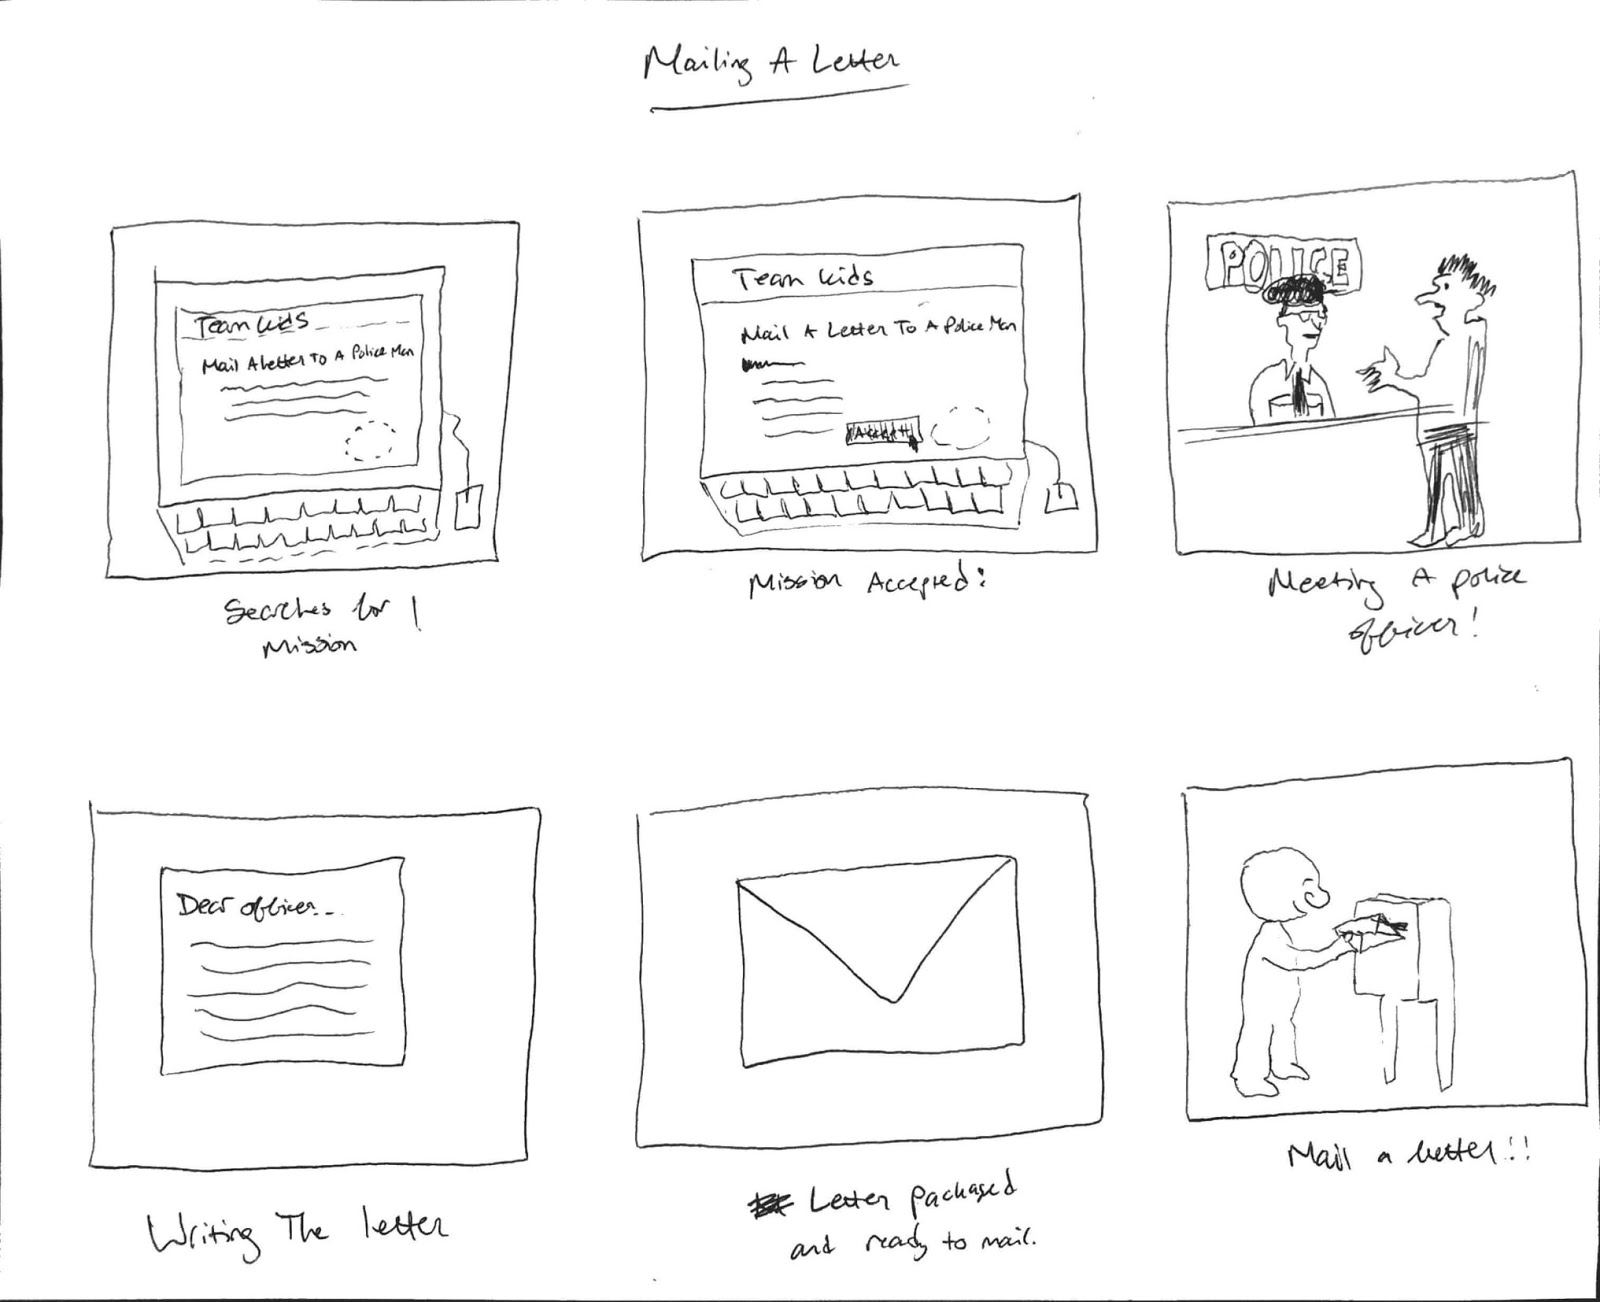 Mailing A Letter
Team kids
Mail A Letter To A Police Man
Searches for 1
Mission
Team kids
Mail A Letter To A Police Man
Accept
Mission Accepted:
POLICE
Meeting A police
officer!
Dear officer...
Writing The letter
Letter packaged
and ready to mail.
Mail a letter!!